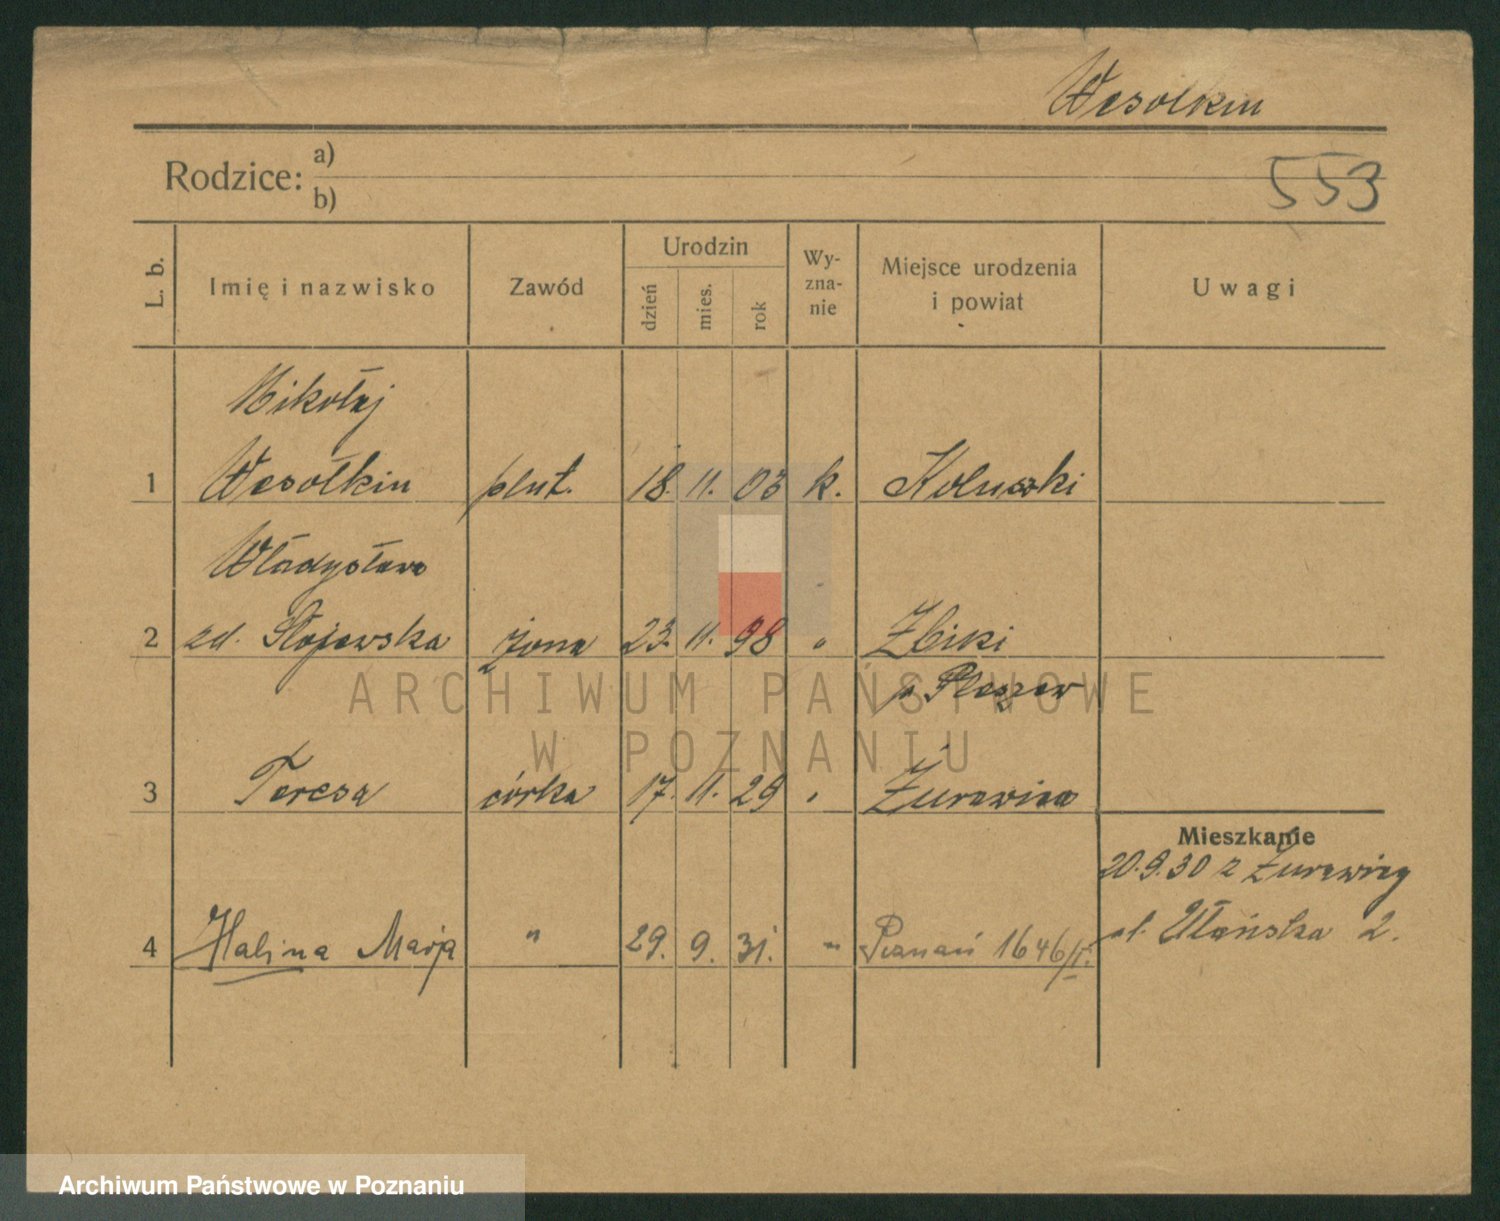 Wesołkin
Rodzice: a)
b)
553
L. b.
Imię i nazwisko
Zawód
Urodzin
dzień
mies.
rok
Wy-
zna-
nie
Miejsce urodzenia
i powiat
Uwagi
Mikołaj
1 Wesołkin plut. 18. 11. 03 k. Koluszki
Władysława
2 zd. Stojewska żona 23. 11. 98 " Żbiki
p. Pleszew
3 Teresa córka 17. 11. 29 " Żurawica
Mieszkanie
20.9.30 z Żurawicy
ul. Ułańska 2.
4 Halina Marja " 29. 9. 31. " Poznań 1646/I.
ARCHIWUM PAŃSTWOWE
W POZNANIU
Archiwum Państwowe w Poznaniu